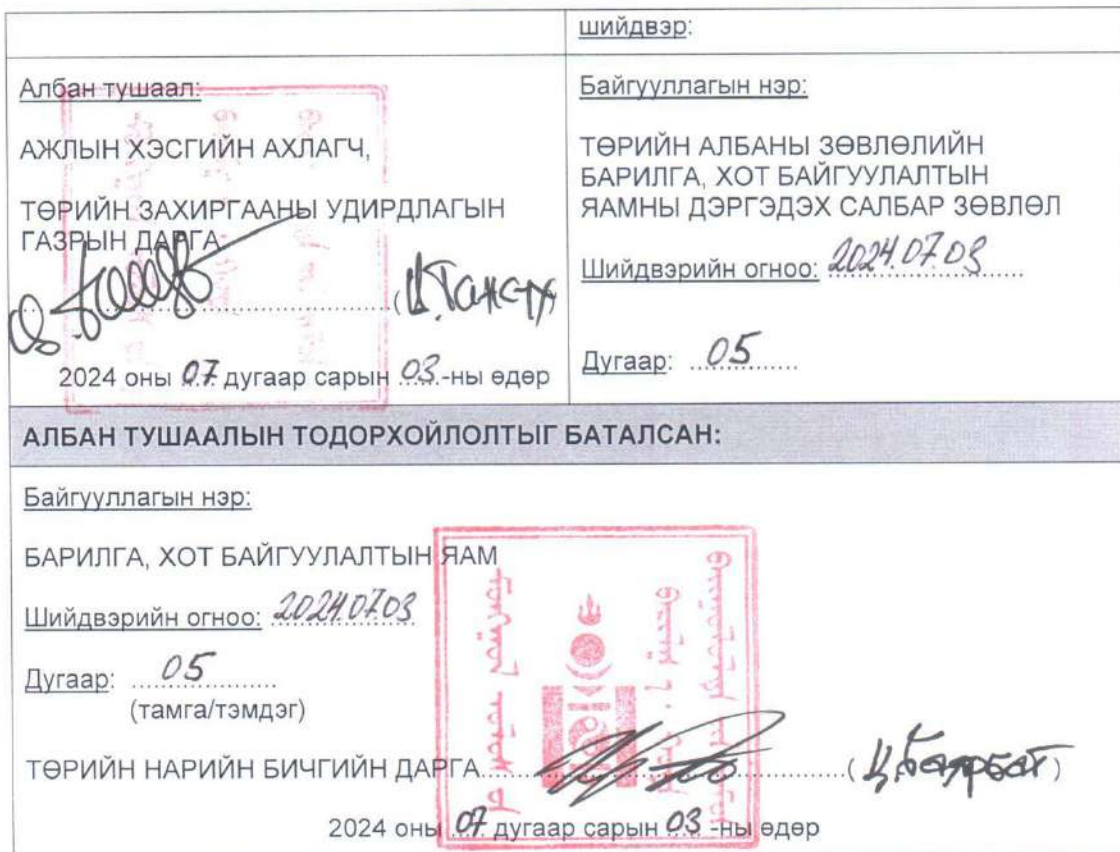 шийдвэр:
Албан тушаал:
АЖЛЫН ХЭСГИЙН АХЛАГЧ,
ТӨРИЙН ЗАХИРГААНЫ УДИРДЛАГЫН
ГАЗРЫН ДАРГА
2024 оны 07 дугаар сарын 03.-ны өдөр
Байгууллагын нэр:
ТӨРИЙН АЛБАНЫ ЗӨВЛӨЛИЙН
БАРИЛГА, ХОТ БАЙГУУЛАЛТЫН
ЯАМНЫ ДЭРГЭДЭХ САЛБАР ЗӨВЛӨЛ
Шийдвэрийн огноо: 2024.07.03
Дугаар: 05
АЛБАН ТУШААЛЫН ТОДОРХОЙЛОЛТЫГ БАТАЛСАН:
Байгууллагын нэр:
БАРИЛГА, ХОТ БАЙГУУЛАЛТЫН ЯАМ
Шийдвэрийн огноо: 2024.07.03
Дугаар: 05
(тамга/тэмдэг)
ТӨРИЙН НАРИЙН БИЧГИЙН ДАРГА
2024 оны 07 дугаар сарын 03 -ны өдөр